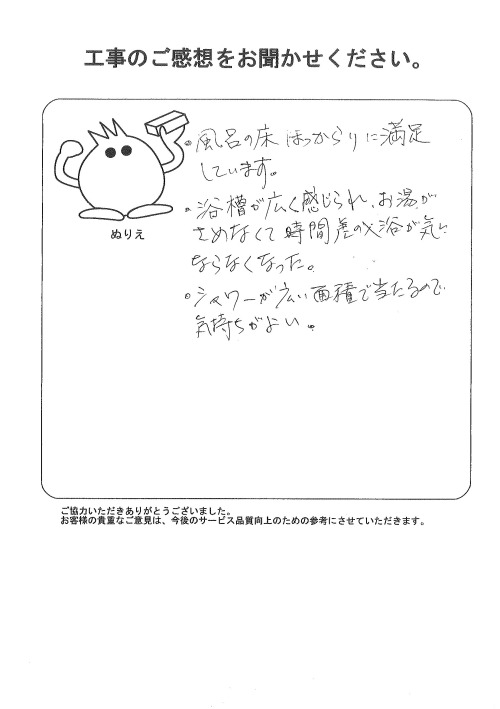 工事のご感想をお聞かせください。
ぬりえ
・風呂の床 ほっからりに満足
しています。
・浴槽が広く感じられ、お湯が
さめなくて時間差の入浴が気に
ならなくなった。
・シャワーが広い面積で当たるので
気持ちがよい。
ご協力いただきありがとうございました。
お客様の貴重なご意見は、今後のサービス品質向上のための参考にさせていただきます。